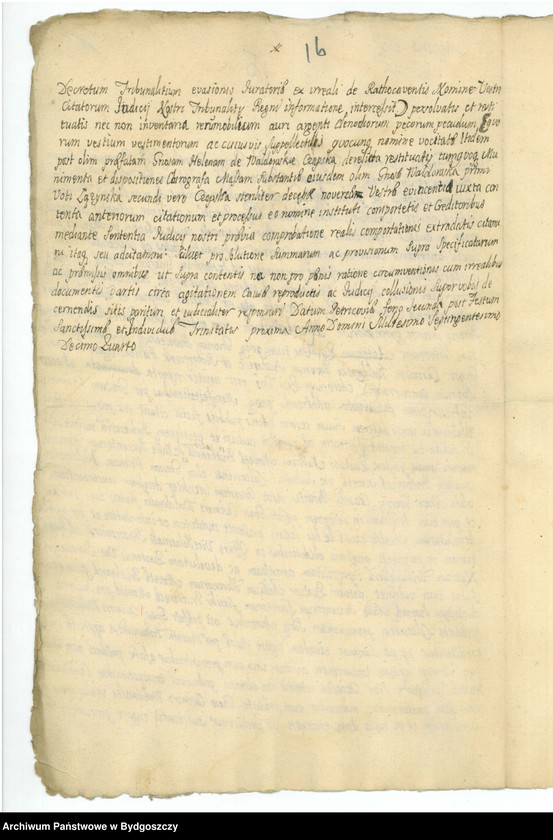 16
Decretum Tribunalitium evasionis Iuratorib ex irreali de Rathocaventis Nomine Vestri
Citatorum Iudicij Nostri Tribunalis Regni informatione, intercessit) persolvatis et
tuatis nec non inventaria rerum mobilium auri argenti Clenodiorum pecorum pecudum, Equo
rum vestium vestimentorum ac cuiusvis suppellectilis quocunq nomine vocitatis Itidem
post olim praefatam Gnosam Helenam de derelicta restituatis cumqvoq Mu
nimenta et dispositiones Chirografa Massam Substantiae eiusdem olim Gnosae primo
Voti secundi vero steriliter novercae Vestrae evincentia iuxta con
tenta anteriorum citationum et processus eo nomine instituti comportetis et Creditoribus
mediante Sententia Iudicij nostri praevia comprobatione realis comportationis extradatis citamini
itaq seu adcitamini Salvet pro Solutione Summarum ac provisionum Supra Specificatarum
ac praemissis omnibus ut Supra contentis nec non pro paenis ratione circumventionis cum irrealibus
documentis partis circa agitationem Causae reproductis ac Iudicij collusionis Super vobis de
cernendis sitis puniri et iudicialiter responsuri Datum Petricoviae feria Secunda post Festum
Sanctissimae et Individuae Trinitatis proxima Anno Domini Millesimo Septingentesimo
Decimo Quarto
Archiwum Państwowe w Bydgoszczy